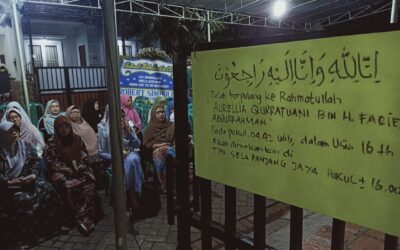 إِنَّالِلّهِ وَإِنَّا إِلَيْهِ رَاجِعُوْنَ
Telah berpulang ke Rahmatullah
AURELLIA QURRATUAINI BIN H. FACIE
ABDURRAHMAN
Pada pukul 04.02 wib, dalam Usia 16 th
Akan dimakamkan di
TPU SELAPANJANG JAYA PUKUL ± 16.00
ROBERT SIM